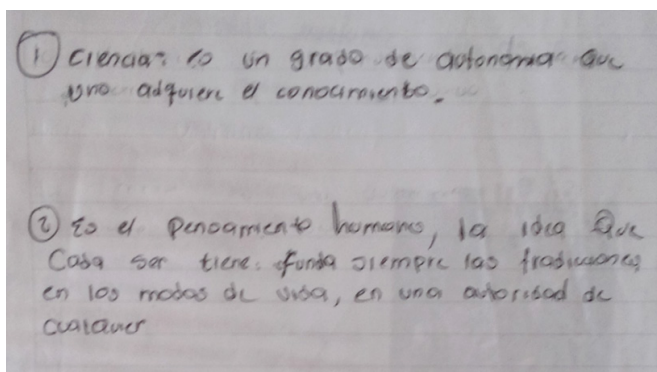 ① Ciencia: es un grado de autonomia que
uno adquiere el conocimiento.
② Es el pensamiento humano, la idea que
Cada ser tiene. funda siempre las tradiciones
en los modos de vida, en una autoridad de
cualquier